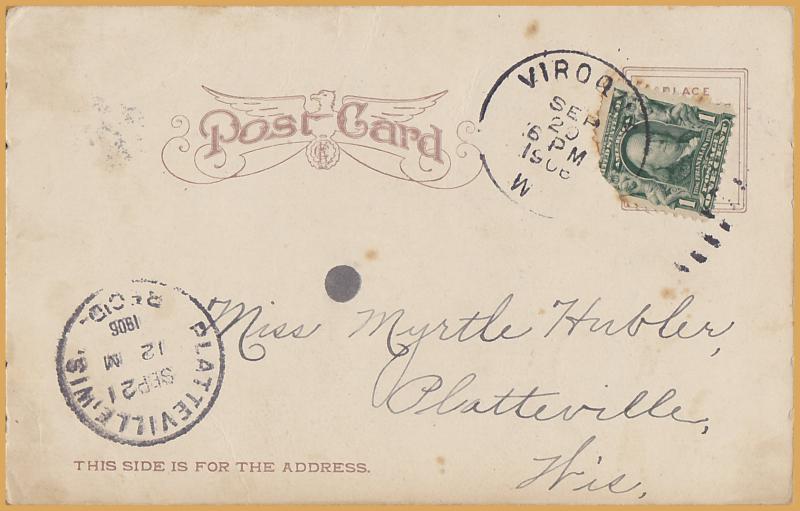 Post Card
PLACE
VIROQ
SEP
20
6 PM
1906
W
1
1
REC'D.
1906
12 M
SEP 21
PLATTEVILLE, WIS.
Miss Myrtle Hubler,
Platteville,
Wis.
THIS SIDE IS FOR THE ADDRESS.